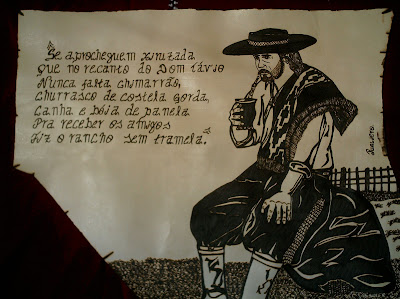 "Se aprocheguem xiruzada
Que no recanto do Dom Távio
Nunca falta chimarrão,
Churrasco de costela gorda,
Canha e bóia de panela
Pra receber os amigos
Fiz o rancho sem tramela."